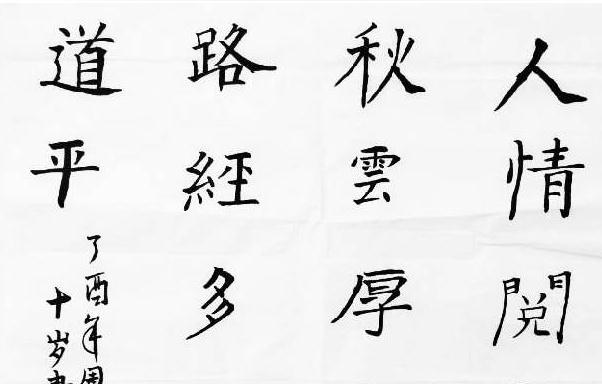 人情閱
秋雲厚
路經多
道平
丁酉年周
十岁书